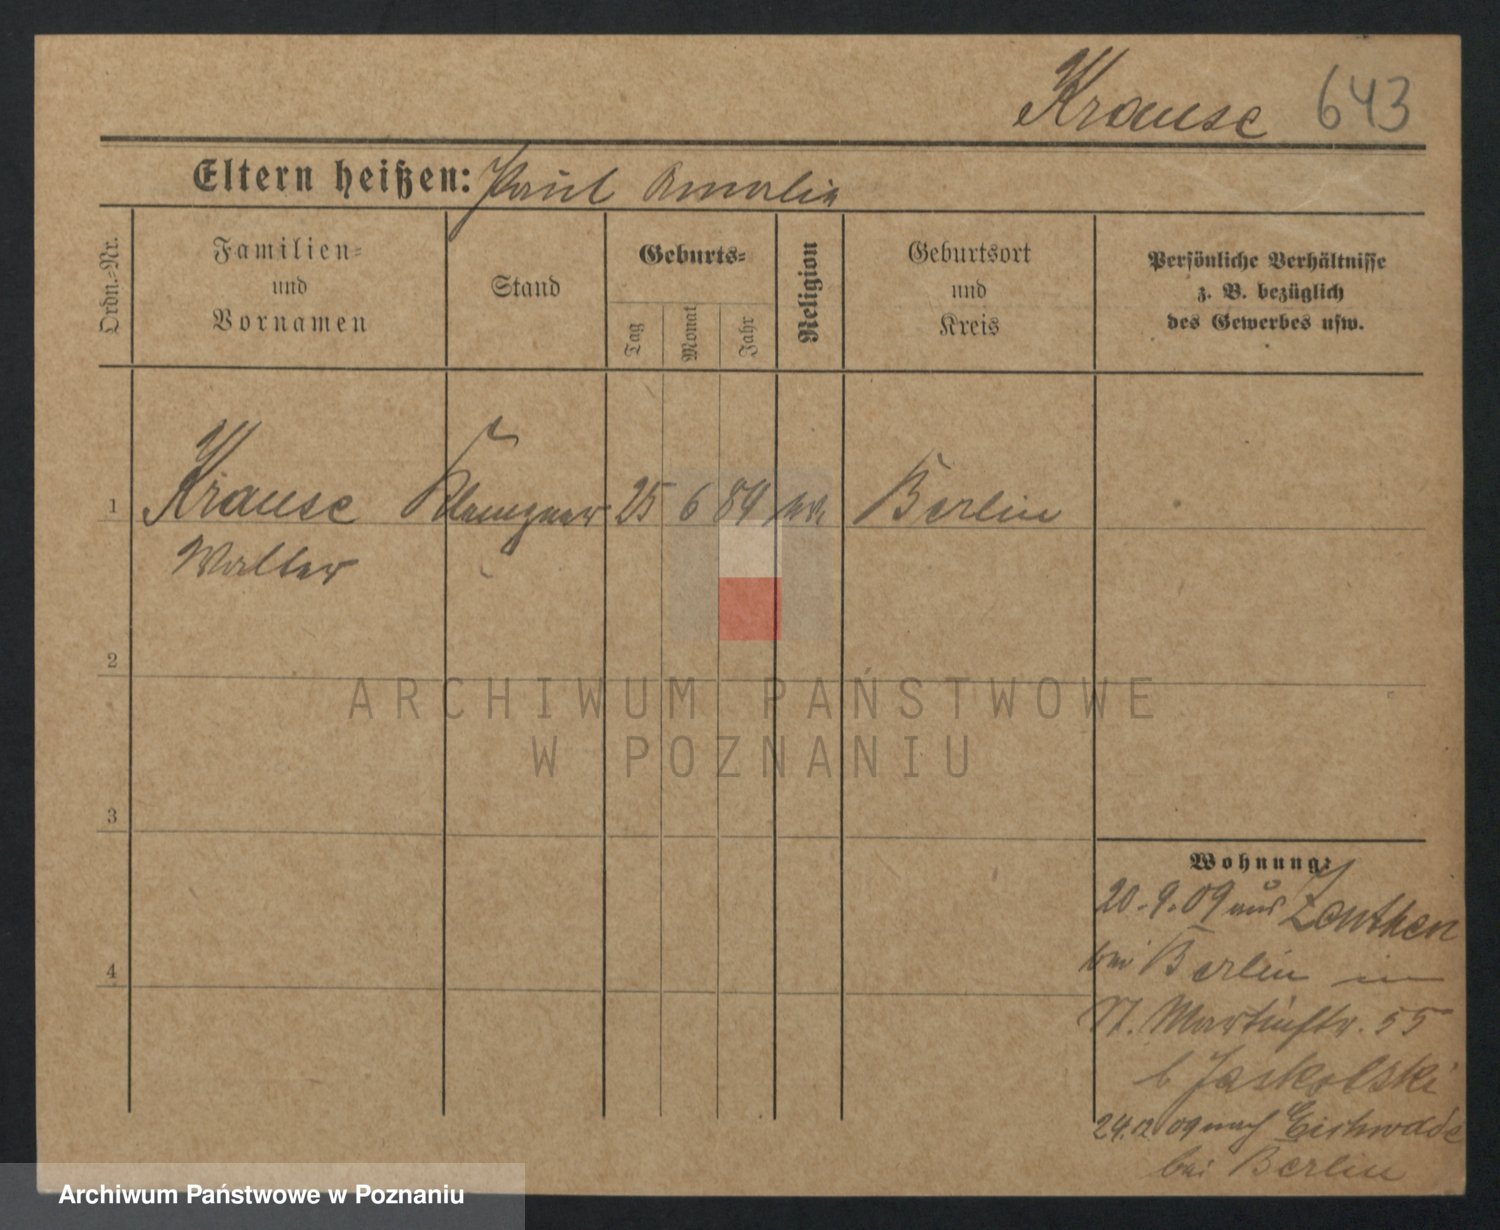 Krause 643
Eltern heißen: Paul Amalie
Ordn.-Nr.
Familien-
und
Vornamen
Stand
Geburts-
Tag
Monat
Jahr
Religion
Geburtsort
und
Kreis
Persönliche Verhältnisse
z. B. bezüglich
des Gewerbes usw.
1 Krause Klempner 25 6 89 Berlin
Walter
2
3
4
Wohnung:
20.9.09 aus Zeuthen
bei Berlin in
St. Martinstr. 55
b Jaskolski
24.12 09 nach Eichwalde
bei Berlin
ARCHIWUM PAŃSTWOWE
W POZNANIU
Archiwum Państwowe w Poznaniu